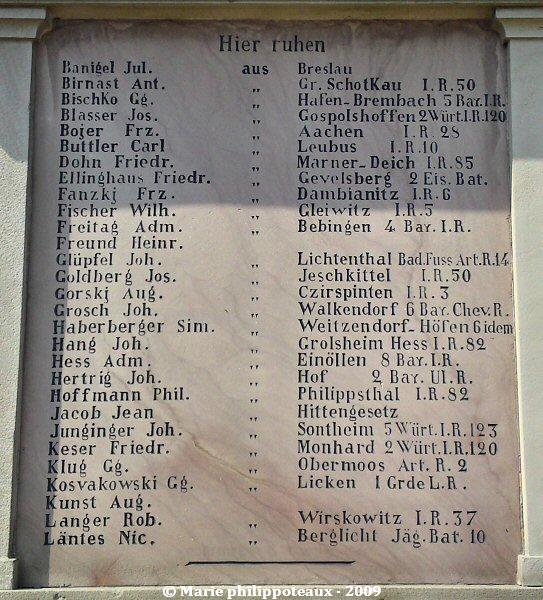 Hier ruhen
Banigel Jul. aus Breslau
Birnast Ant. „ Gr. SchotKau I.R.50
BischKo Gg. „ Hafen-Brembach 5 Bay.I.R.
Blasser Jos. „ Gospolshoffen 2 Würt.I.R.120
Bojer Frz. „ Aachen I.R. 28
Buttler Carl „ Leubus I.R.10
Dohn Friedr. „ Marner-Deich I.R.85
Ellinghaus Friedr. „ Gevelsberg 2 Eis. Bat.
Fanzkj Frz. „ Dambianitz I.R.6
Fischer Wilh. „ Gleiwitz I.R.5
Freitag Adm. „ Bebingen 4 Bay. I.R.
Freund Heinr. „
Glüpfel Joh. „ Lichtenthal Bad.Fuss Art.R.14
Goldberg Jos. „ Jeschkittel I.R.50
Gorskj Aug. „ Czirspinten I.R. 3
Grosch Joh. „ Walkendorf 6 Bay. Chev.R.
Haberberger Sim. „ Weitzendorf-Höfen 6 idem
Hang Joh. „ Grolsheim Hess I.R.82
Hess Adm. „ Einöllen 8 Bay. I.R.
Hertrig Joh. „ Hof 2 Bay. Ul.R.
Hoffmann Phil. „ Philippsthal I.R.82
Jacob Jean „ Hittengesetz
Junginger Joh. „ Sontheim 5 Würt.I.R.123
Keser Friedr. „ Monhard 2 Würt.I.R.120
Klug Gg. „ Obermoos Art. R. 2
Kosvakowski Gg. „ Licken 1 Grde L.R.
Kunst Aug.
Langer Rob. „ Wirskowitz I.R.37
Läntes Nic. „ Berglicht Jäg.Bat. 10
© Marie philippoteaux - 2009